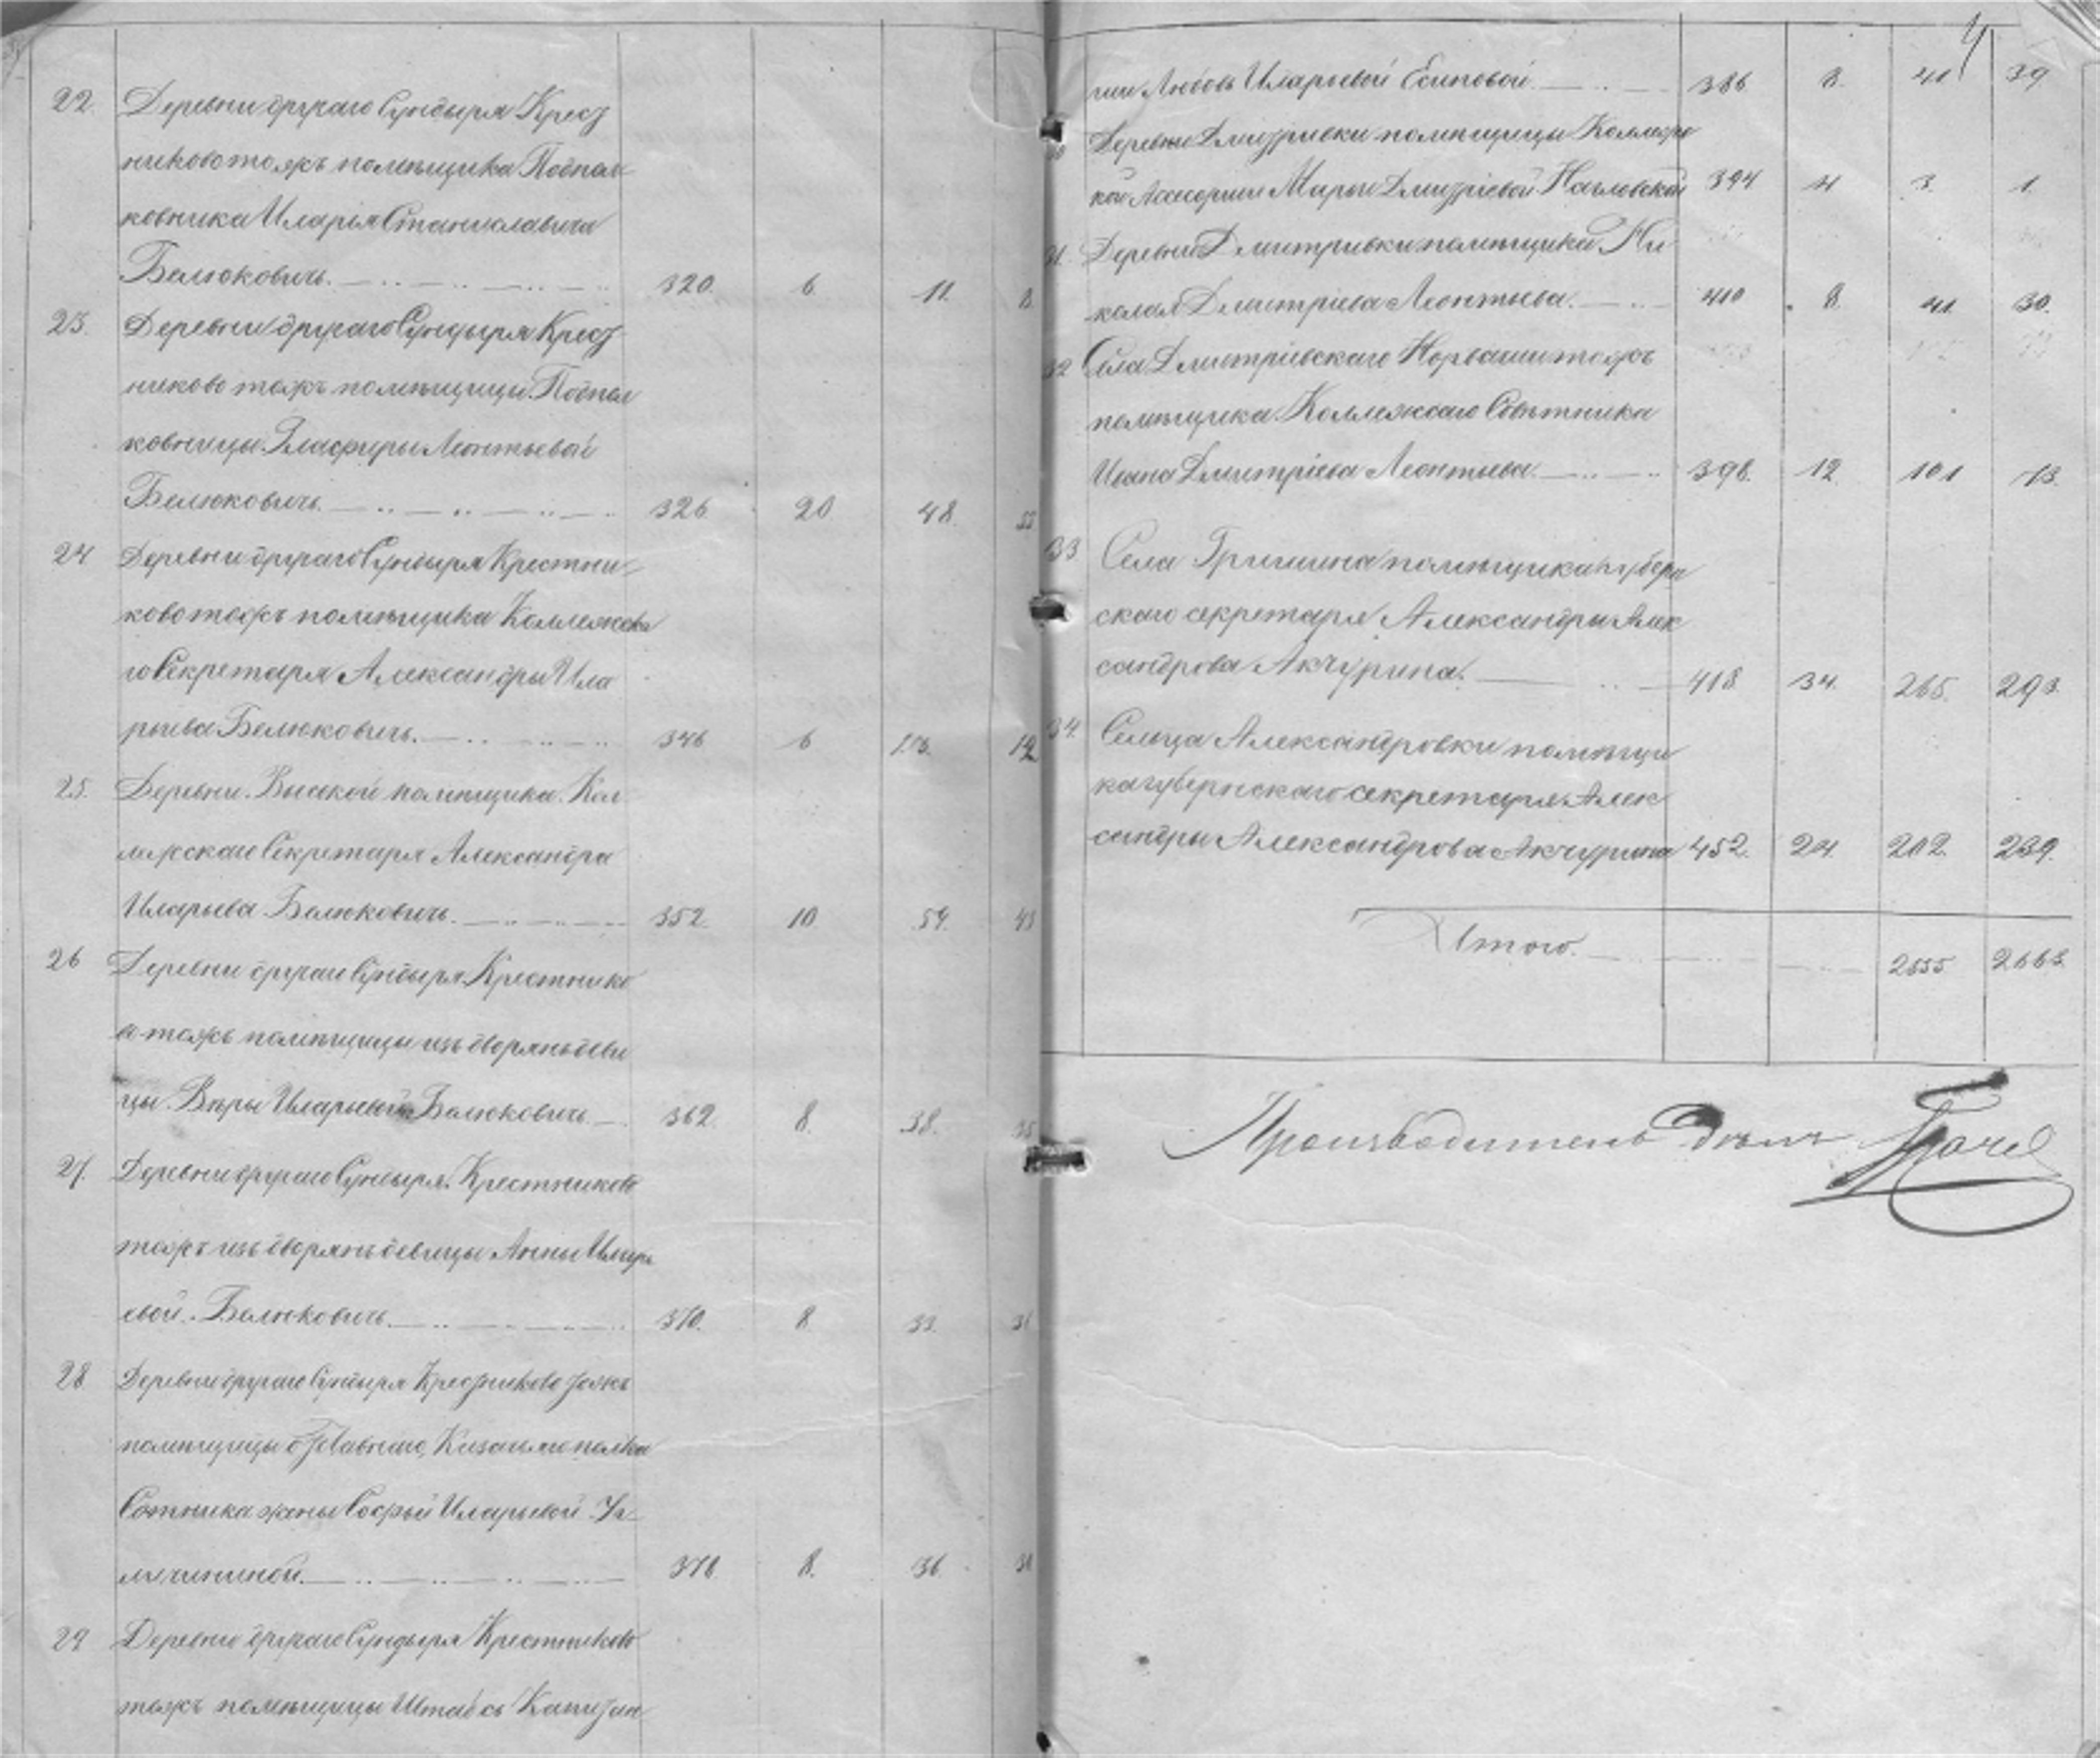 22. Деревни другаго Сундыря Крест
никово тожъ помѣщика Подпол
ковника Иларiя Станиславича
Белюковичь. 320. 6. 11. 8
23. Деревни другаго Сундыря Крест
никово тожъ помѣщицы Подпол
ковницы Глафиры Леонтьевой
Белюковичь. 326. 20. 48.
24 Деревни другаго Сундыря Крестни-
ково тожъ помѣщика Коллежска
го Секретаря Александры Ила
рьева Белюковичь. 346 6 12
25. Деревни Высокой помѣщика Кол
лежскаго Секретаря Александра
Иларьева Белюковичь. 352. 10 54. 43
26 Деревни другаго Сундыря Крестнико
во тожъ помѣщицы изъ дворянъ дѣви
цы Вѣры Иларьевой Белюковичь 362. 8. 38. 35
27. Деревни другаго Сундыря Крестниково
тожъ изъ дворянъ дѣвицы Анны Илларь
евой Белюковичь. 370. 8 33. 31
28 Деревни другаго Сундыря Крестниково тожъ
помѣщицы полка
Сотника жены Софьи Иларьевой
378 8. 36.
29 Деревни другаго Сундыря Крестниково
тожъ помѣщицы Штабсъ Капитан
4
ши Любовь Иларьевой Есиповой. 386 8. 41 39
Деревни Дмитрiевки помѣщицы Коллежс
кой Ассесорши Марьи Дмитрiевой 394 4 3. 1.
31. Деревни Дмитривки помѣщика Ни
колая Дмитрiева Леонтьева. 410 8. 41. 30.
32 Села Дмитрiевскаго Норваши тожъ
помѣщика Коллежскаго Совѣтника
Ивана Дмитрiева Леонтьева. 398. 12. 101 73.
33 Села Гришина помѣщика губерн
скаго секретаря Александры Алек
сандрова Акчурина. 418 34. 265. 293.
34. Сельца Александровки помѣщи
ка губернскаго секретаря Алек
сандры Александрова Акчурина 452. 24. 202. 239.
Итого. 2555 2663.
Производитель дѣлъ